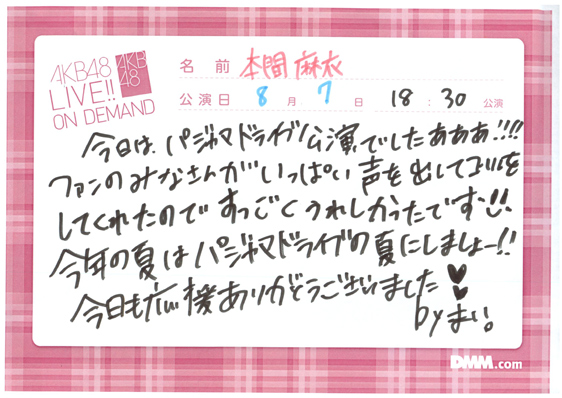 AKB48
LIVE!!
ON DEMAND
AKB
48
名前 本間麻衣
公演日 8月7日 18:30 公演
今日は、パジャマドライブ公演でしたあああ!!!!
ファンのみなさんがいっぱい声を出してコールを
してくれたのですっごくうれしかったです!!
今年の夏はパジャマドライブの夏にしましょー!!
今日も応援ありがとうございました♥♥
by まい。
DMM.com